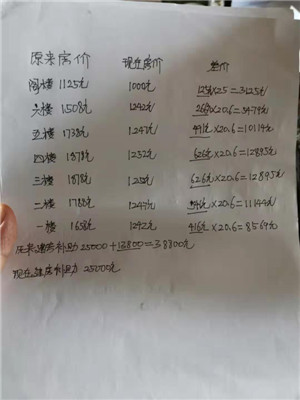 原来房价 现在房价 差价
阁楼 1125元 1000元 125元×25=3125元
六楼 1508元 1242元 266元×20.6=5479元
五楼 1738元 1247元 491元×20.6=10114元
四楼 1878元 1252元 626元×20.6=12895元
三楼 1878元 1252元 626元×20.6=12895元
二楼 1788元 1247元 541元×20.6=11144元
一楼 1658元 1242元 416元×20.6=8569元
原来 补助25000+13800=38800元
现在 补助 25000元